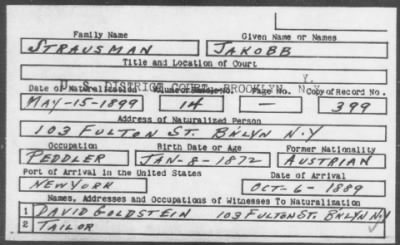 Family Name Given Name or Names
STRAUSMAN JAKOBB
Title and Location of Court
U. S. DISTRICT COURT, BROOKLYN, N.Y.
Date of Naturalization Volume or Bundle No. Page No. Copy of Record No.
MAY-15-1899 14 — 399
Address of Naturalized Person
103 FULTON ST. BKLYN N.Y
Occupation Birth Date or Age Former Nationality
PEDDLER JAN-8-1872 AUSTRIAN
Port of Arrival in the United States Date of Arrival
NEW YORK OCT-6-1889
Names, Addresses and Occupations of Witnesses To Naturalization
1 DAVID GOLDSTEIN 103 FULTON ST. BKLYN N.Y
2 TAILOR